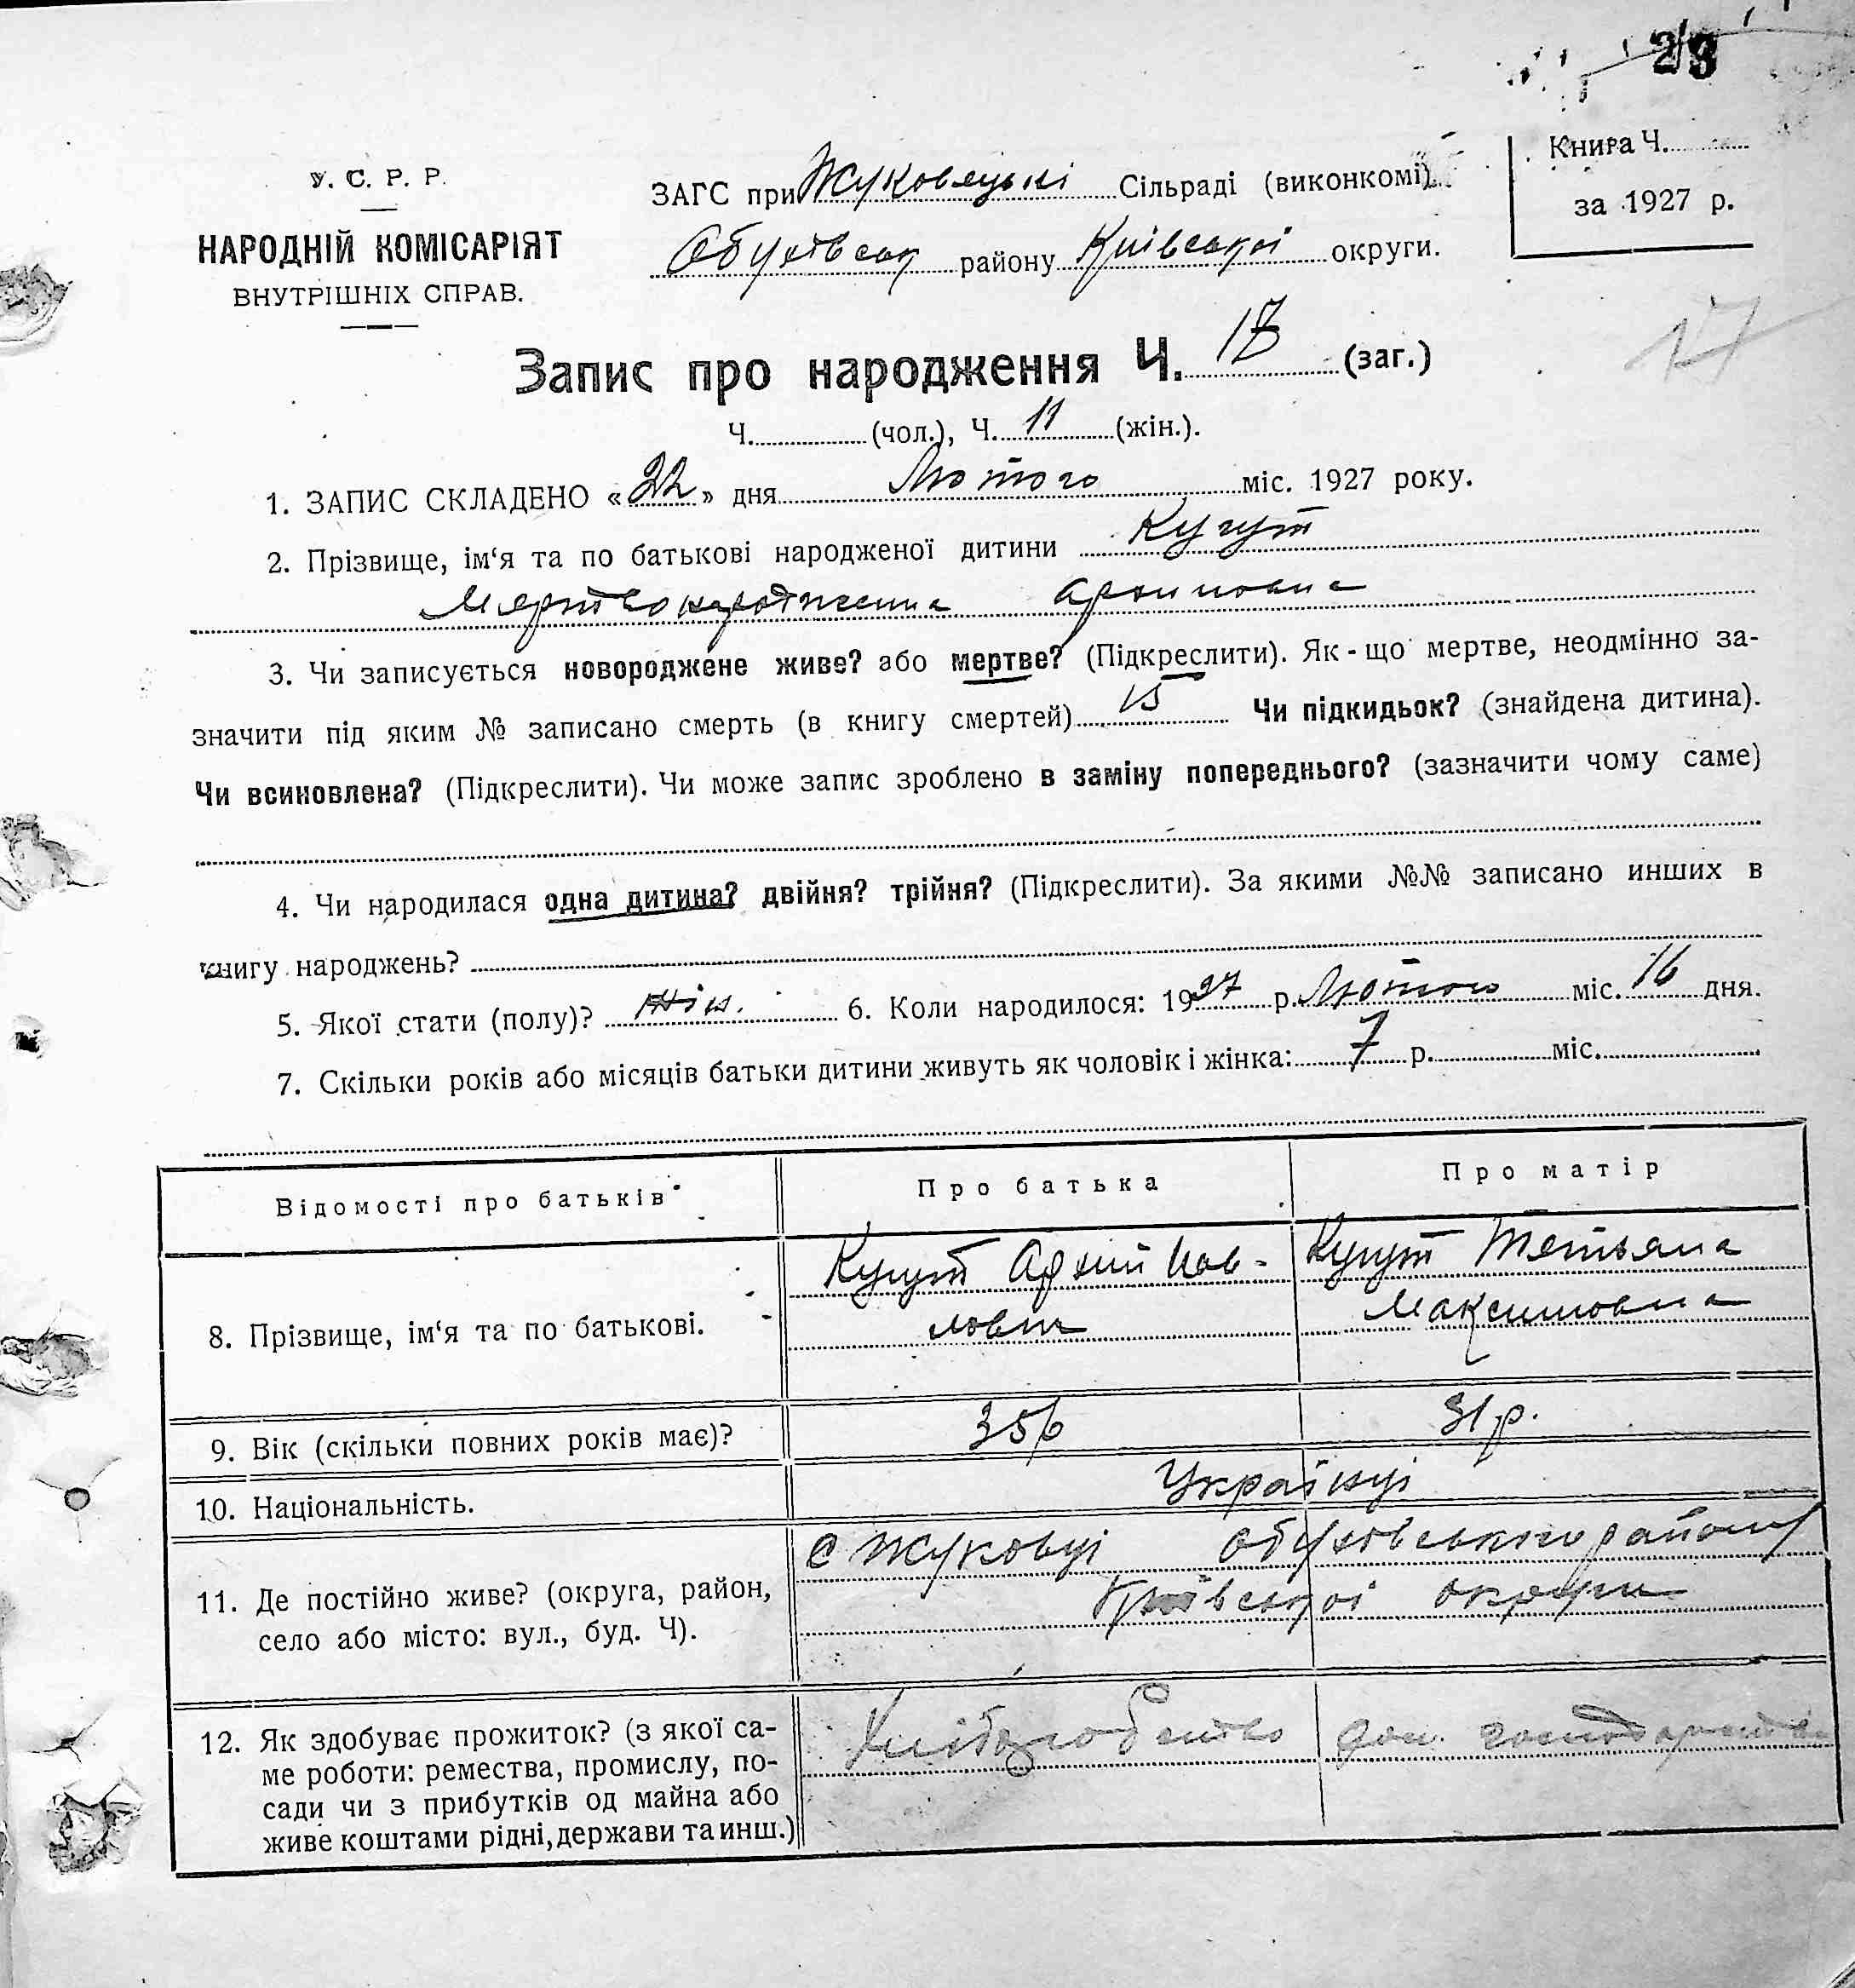 23
Книга Ч.
за 1927 р.
У. С. Р. Р.
НАРОДНІЙ КОМІСАРІЯТ
ВНУТРІШНІХ СПРАВ.
ЗАГС при Жуковецькі Сільраді (виконкомі)
Обухівськ району Київської округи.
17
Запис про народження Ч. 18 (заг.)
Ч. (чол.), Ч. 11 (жін.).
1. ЗАПИС СКЛАДЕНО «22» дня Лютого міс. 1927 року.
2. Прізвище, ім‘я та по батькові народженої дитини Кугут
Мертвонародженна
3. Чи записується новороджене живе? або мертве? (Підкреслити). Як-що мертве, неодмінно за-
значити під яким № записано смерть (в книгу смертей) 15 Чи підкидьок? (знайдена дитина).
Чи всиновлена? (Підкреслити). Чи може запис зроблено в заміну попереднього? (зазначити чому саме)
4. Чи народилася одна дитина? двійня? трійня? (Підкреслити). За якими №№ записано инших в
книгу народжень?
5. Якої стати (полу)? жін. 6. Коли народилося: 1927 р. Лютого міс. 16 дня.
7. Скільки років або місяців батьки дитини живуть як чоловік і жінка: 7 р. міс.
Відомості про батьків
Про батька
Про матір
8. Прізвище, ім‘я та по батькові.
Кугут Архип Пав-
лович
Кугут Тетьяна
Максимовна
9. Вік (скільки повних років має)?
35
31 р.
10. Національність.
Українці
11. Де постійно живе? (округа, район,
село або місто: вул., буд. Ч).
с Жуковці Обухівського району
Київської округи
12. Як здобуває прожиток? (з якої са-
ме роботи: ремества, промислу, по-
сади чи з прибутків од майна або
живе коштами рідні, держави та инш.)
Хліборобство
дом. господарство